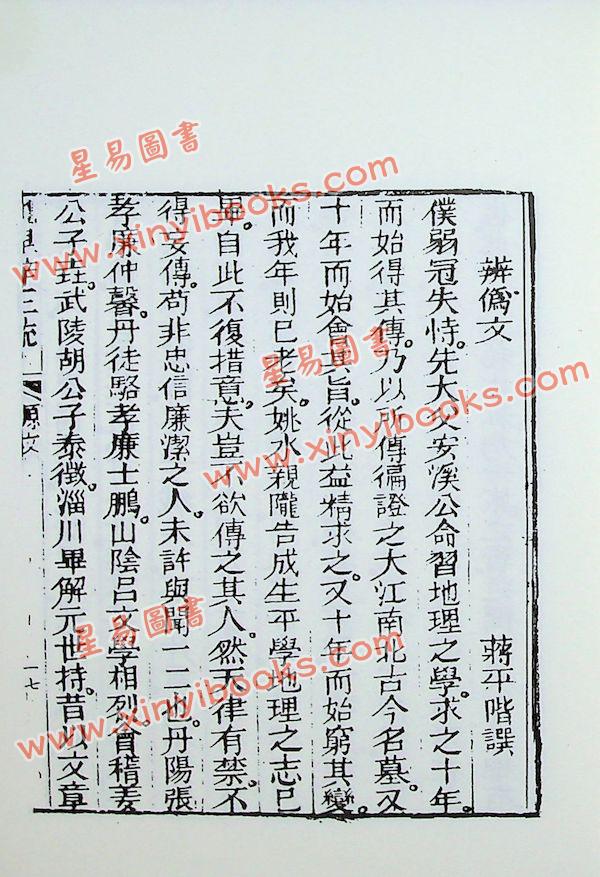 辨僞文
蔣平階譔
僕弱冠失恃。先大父安溪公命習地理之學。求之十年。
而始得其傳。乃以所傳徧證之大江南北古今名墓。又
十年而始會其旨。從此益精求之。又十年而始窮其變。
而我年則已老矣。姚水親隴告成生平學地理之志已
畢。自此不復措意。夫豈不欲傳之其人。然天律有禁。不
得妄傳。苟非忠信廉潔之人。未許與聞一二也。丹陽張
孝廉仲馨。丹徒駱孝廉士鵬。山陰呂文學相烈。會稽姜
公子垚。武陵胡公子泰徵。淄川畢解元世持。昔以文章
原文
一七
星易圖書
www.xinyibooks.com
星易圖書
www.xinyibooks.com
星易圖書
www.xinyibooks.com